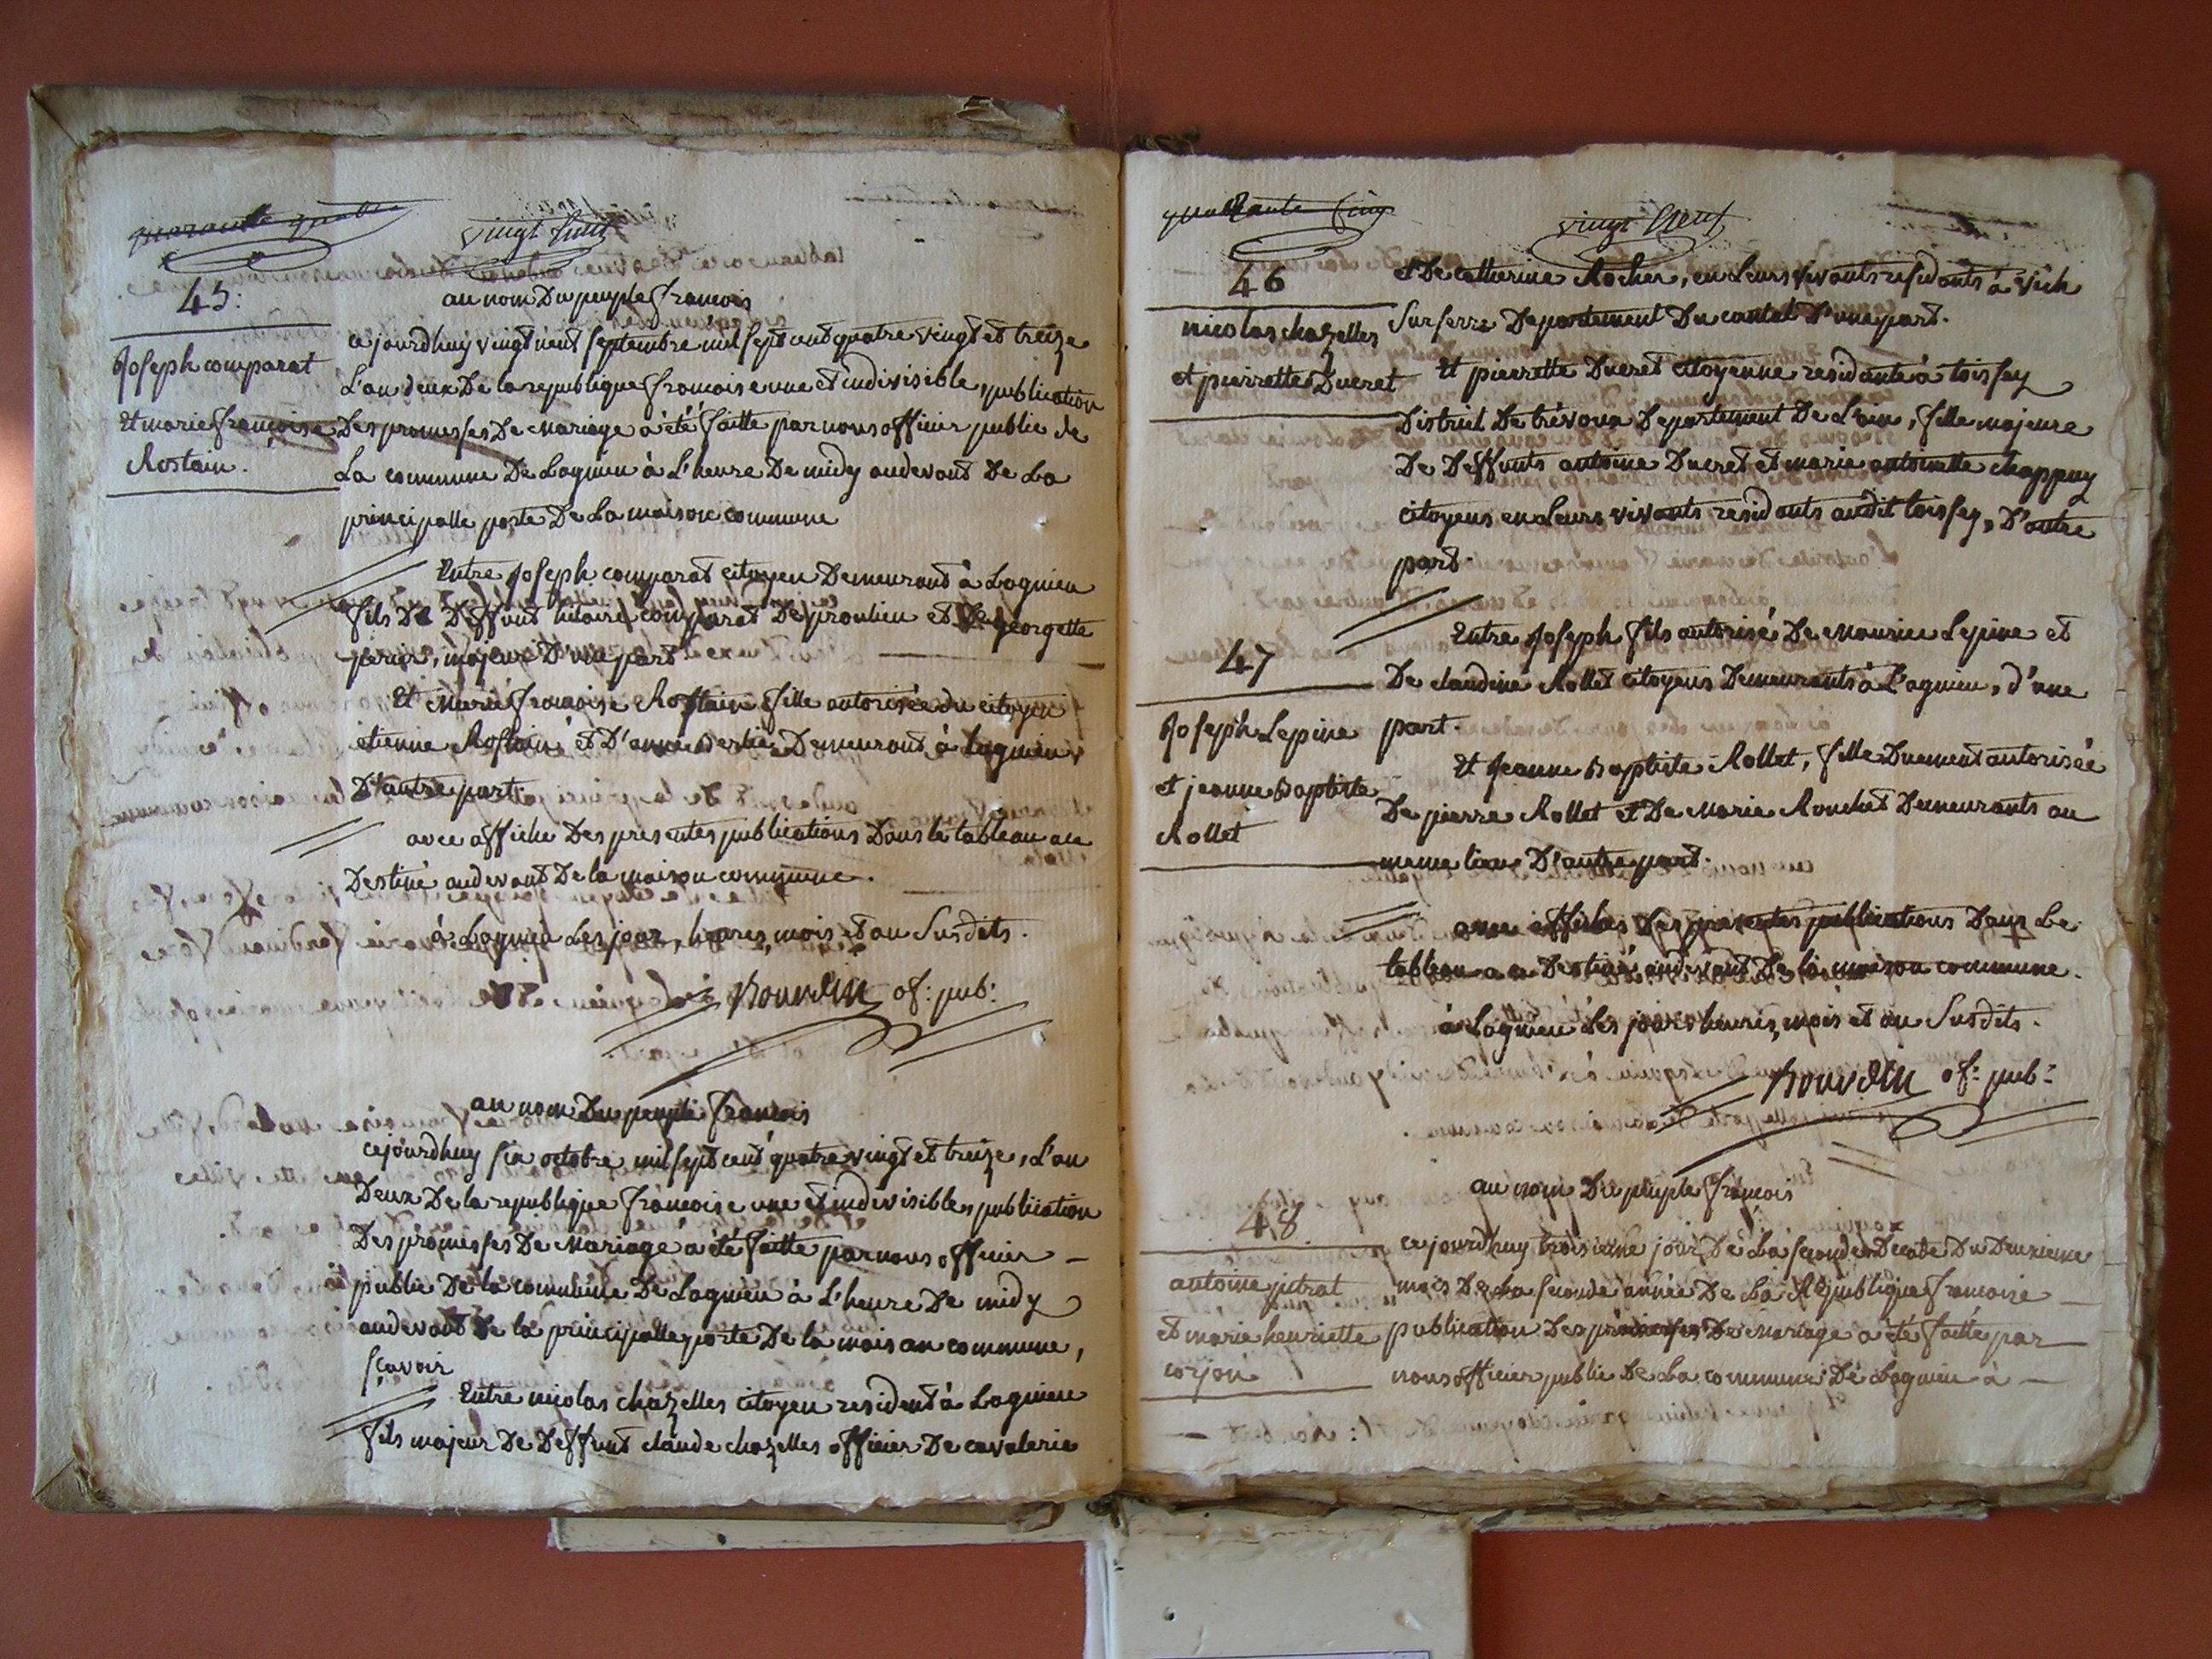 quarante quatre
vingt huit
45:
au nom Du peuple francois
Joseph comparat
Et marie francoise
Rostain.
cejourdhuy vingt neuf septembre mil sept cent quatre vingt et treize
L'an deux De la republique francoise une et indivisible, publication
Des promesses De Mariage à été faitte par nous officier public de
La commune De Lagnieu à L'heure De midy audevant De La
principalle porte De La maison commune
Entre Joseph comparat citoyen Demeurant à Lagnieu
fils De Deffunt hilaire comparat De proulieu et De georgette
perier, majeur D'une part
Et Marie francoise Rostain fille autorisée du citoyen
etienne Rostain et D'anne Demeurant à Lagnieu
D'autre part.
avec affiche Des presentes publications Dans le tableau a ce
Destiné audevant De la maison commune.
à Lagnieu Les jour, heures, mois et an Susdits.
Bourdin of: pub:
au nom Du peuple francois
cejourdhuy six octobre mil sept cent quatre vingt et treize, L'an
Deux De la republique francoise une et indivisible, publication
Des promesses De Mariage a été faitte par nous officier
public De la commune De Lagnieu à L'heure De midy
audevant De la principalle porte De la maison commune,
sçavoir
Entre nicolas chazelles citoyen resident à Lagnieu
fils majeur De Deffunt claude chazelles officier De cavalerie
quarante cinq
vingt Neuf
46
nicolas chazelles
et pierrette Ducret
et De catherine Rocher, en Leurs vivants residants à vich
Sur serre Departement Du cantal D'une part.
Et pierrette Ducret citoyenne residante à toissey
District De trévoux Departement De L'ain, fille majeure
De Deffunts antoine Ducret et marie antoinette chappuy
citoyens en Leurs vivants residants audit toissey, D'autre
part.
47
Joseph Lepine
et jeanne Baptiste
Rollet
Entre Joseph fils autorisé De Maurice Lepine et
De claudine Rollet citoyens Demeurants à Lagnieu, d'une
part.
Et Jeanne Baptiste Rollet, fille Duement autorisée
De pierre Rollet et De Marie Ronchet Demeurants au
meme lieu D'autre part.
avec affiches Des presentes publications Dans Le
tableau a ce Destiné audevant De la maison commune.
à Lagnieu Les jour, heures, mois et an Susdits.
Bourdin of: pub:
au nom Du peuple francois
48
antoine jutrat
et marie henriette
corjon
cejourdhuy troisieme jour De La seconde Decade Du Deuxieme
mois De La seconde année De La Republique francoise
publication Des promesses De Mariage a été faitte par
nous officier public De La commune De Lagnieu à